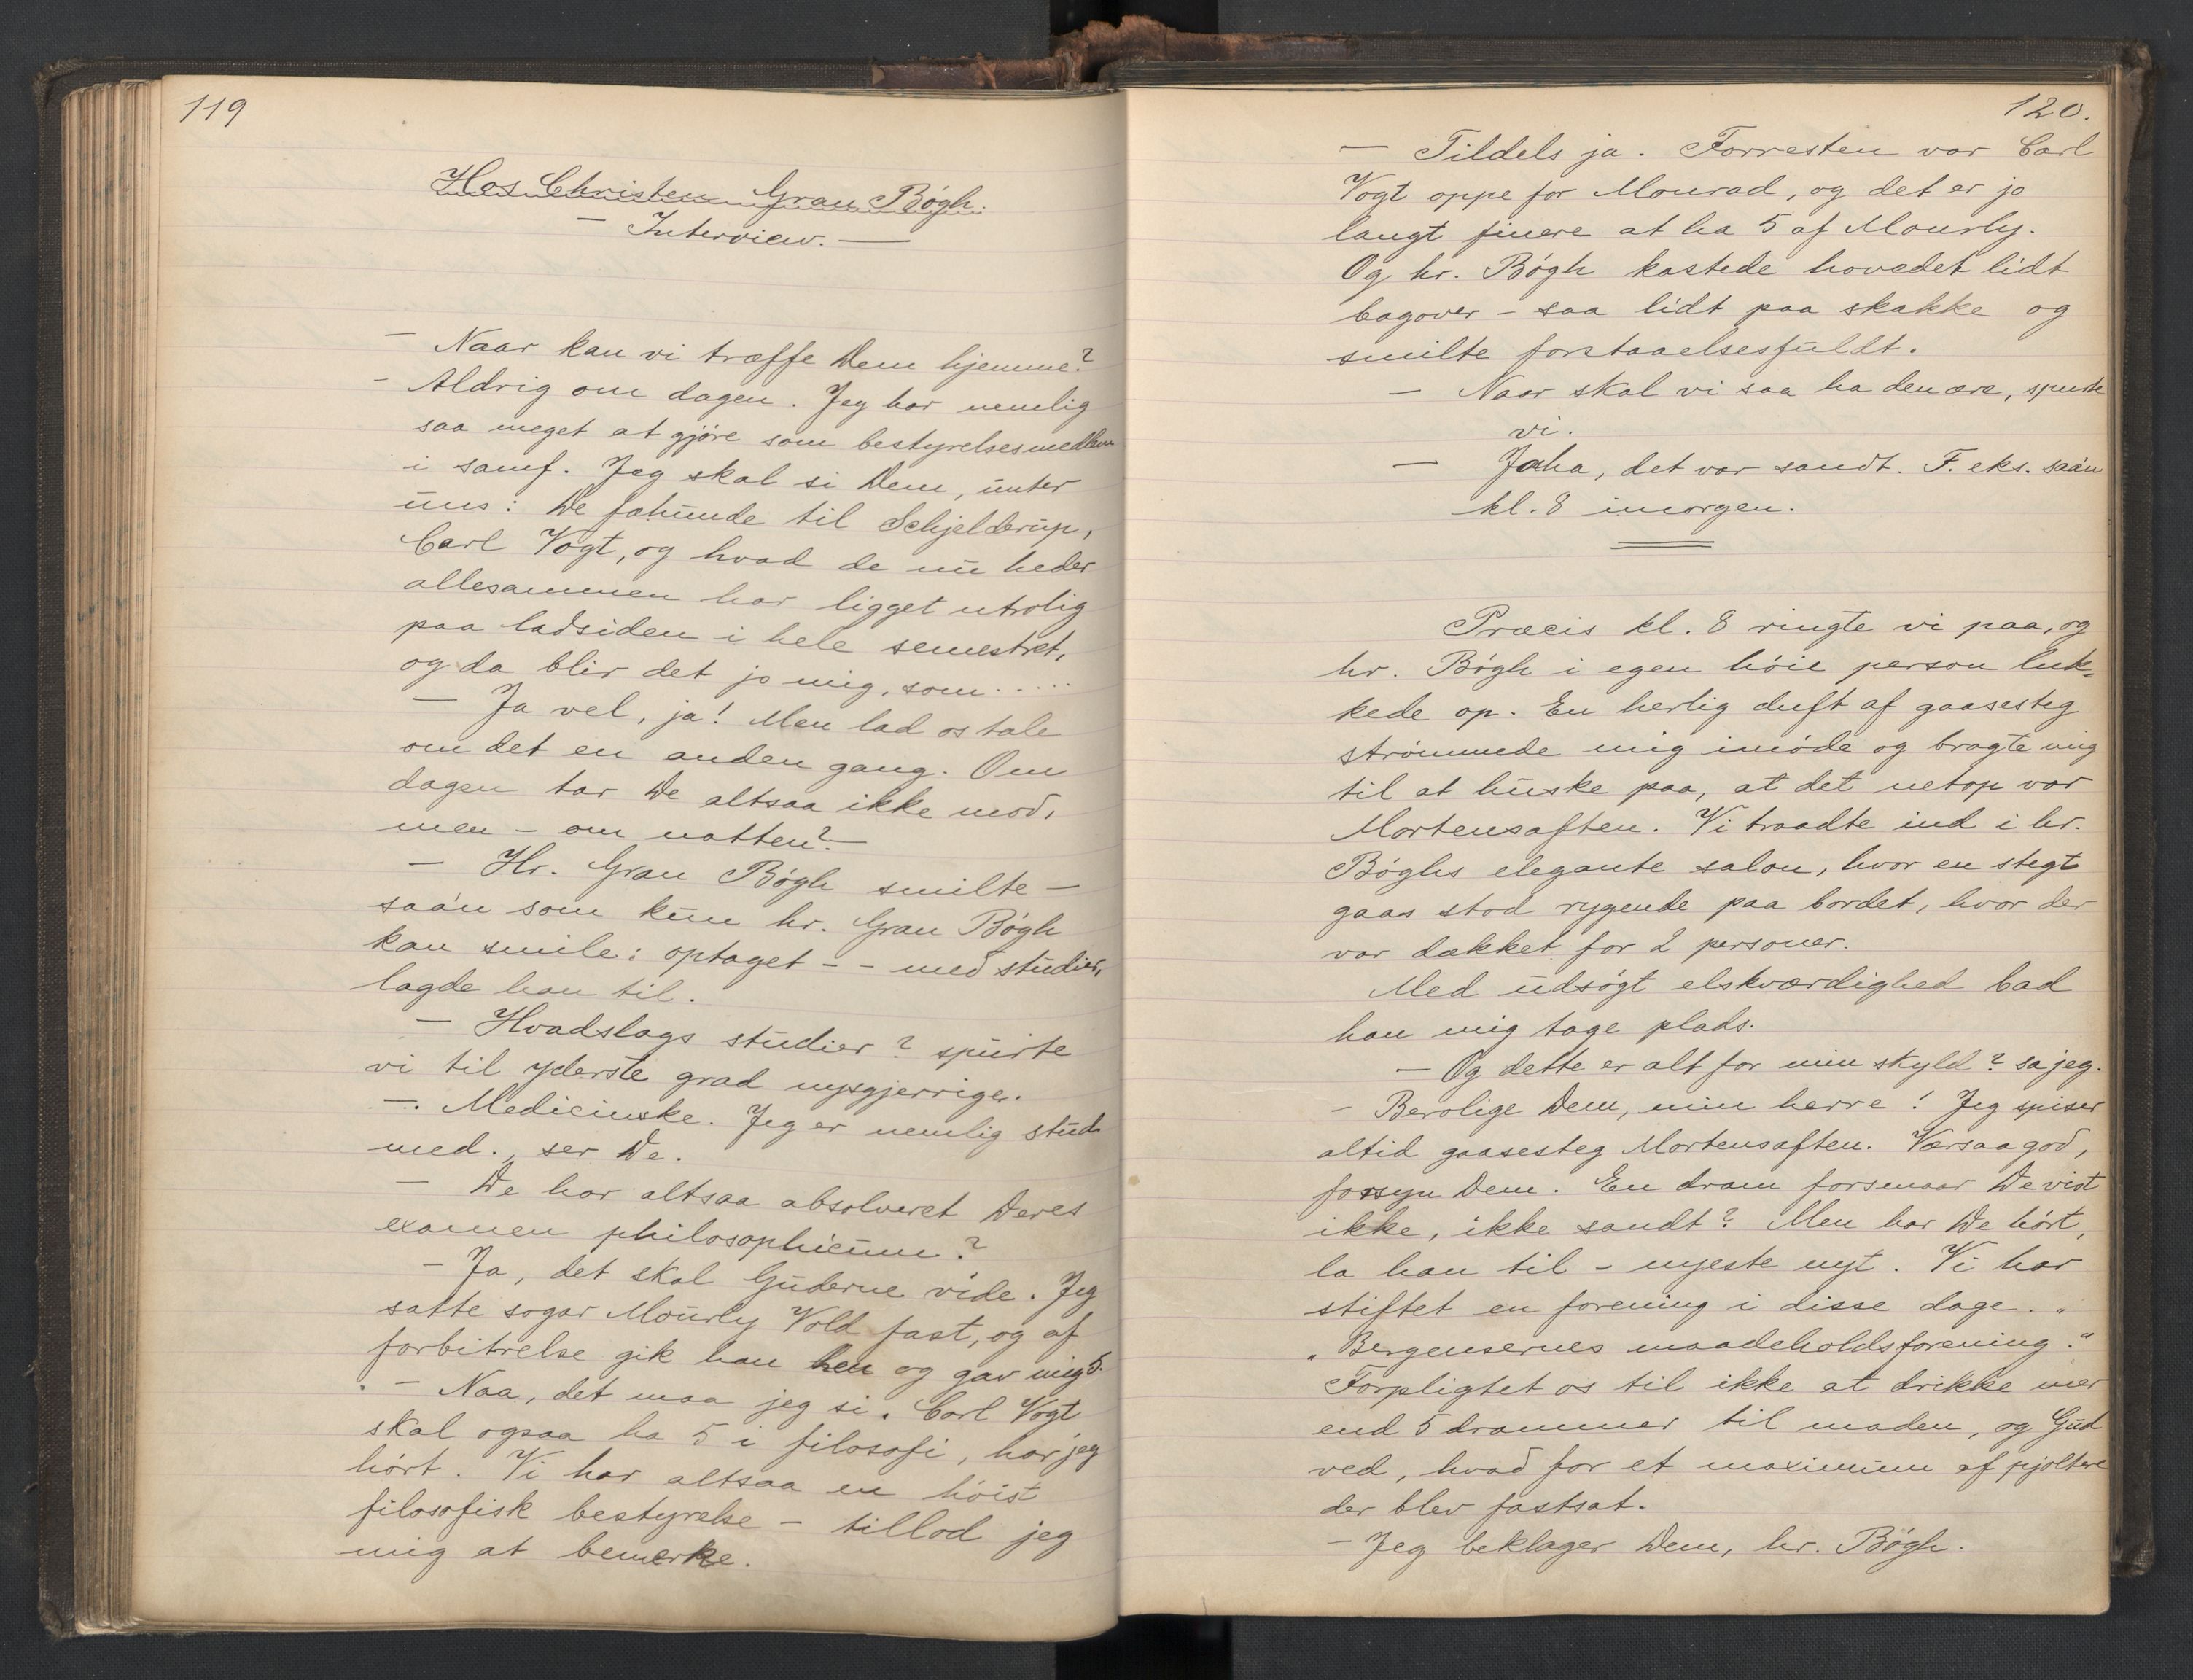 119
Hos Christen Gran Bøgh.
— Interview. —
— Naar kan vi træffe Dem hjemme?
- Aldrig om dagen. Jeg har nemlig
saa meget at gjøre som bestyrelsesmedlem
i samf. Jeg skal si Dem, unter
uns: De fæhunde til Schjelderup,
Carl Vogt, og hvad de nu heder
allesammen har ligget utrolig
paa ladsiden i hele semestret,
og da blir det jo mig, som.....
— Ja vel, ja! Men lad os tale
om det en anden gang. Om
dagen tar De altsaa ikke mod,
men - om natten? —
— Hr. Gran Bøgh smilte —
saa'n som kun hr. Gran Bøgh
kan smile: optaget - - med studier,
lagde han til.
— Hvadslags studier? spurte
vi til yderste grad nysgjerrige.
—. Medicinske. Jeg er nemlig stud.
med., ser De.
— De har altsaa absolveret Deres
examen philosophicum?
- Ja, det skal Guderne vide. Jeg
satte sogar Mourly Vold fast, og af
forbitrelse gik han hen og gav mig 5.
. - Naa, det maa jeg si. Carl Vogt
skal ogsaa ha 5 i filosofi, har jeg
hørt. Vi har altsaa en høist
filosofisk bestyrelse - tillod jeg
mig at bemerke.
120.
— Tildels ja. Forresten var Carl
Vogt oppe for Monrad, og det er jo
langt finere at ha 5 af Mourly.
Og hr. Bøgh kastede hovedet lidt
bagover - saa lidt paa skakke og
smilte forstaaelsesfuldt.
— Naar skal vi saa ha den ære, spurte
vi.
— Jaha, det var sandt. F. eks. saa'n
kl. 8 imorgen.
Præcis kl. 8 ringte vi paa, og
hr. Bøgh i egen høie person luk-
kede op. En herlig duft af gaasesteg
strømmede mig imøde og bragte mig
til at huske paa, at det netop var
Mortensaften. Vi traadte ind i hr.
Bøghs elegante salon, hvor en stegt
gaas stod rygende paa bordet, hvor der
var dækket for 2 personer.
Med udsøgt elskværdighed bad
han mig tage plads.
— Og dette er alt for min skyld? sa jeg.
- Berolige Dem, min herre! Jeg spiser
altid gaasesteg Mortensaften. Værsaagod,
forsyn Dem. En dram forsmaar De vist
ikke, ikke sandt? Men har De hørt,
la han til - nyeste nyt. Vi har
stiftet en forening i disse dage. "
„Bergensernes maadeholdsforening."
Forpligtet os til ikke at drikke mer
end 5 drammer til maden, og Gud
ved, hvad for et maximum af pjoltere
der blev fastsat.
- Jeg beklager Dem, hr. Bøgh.